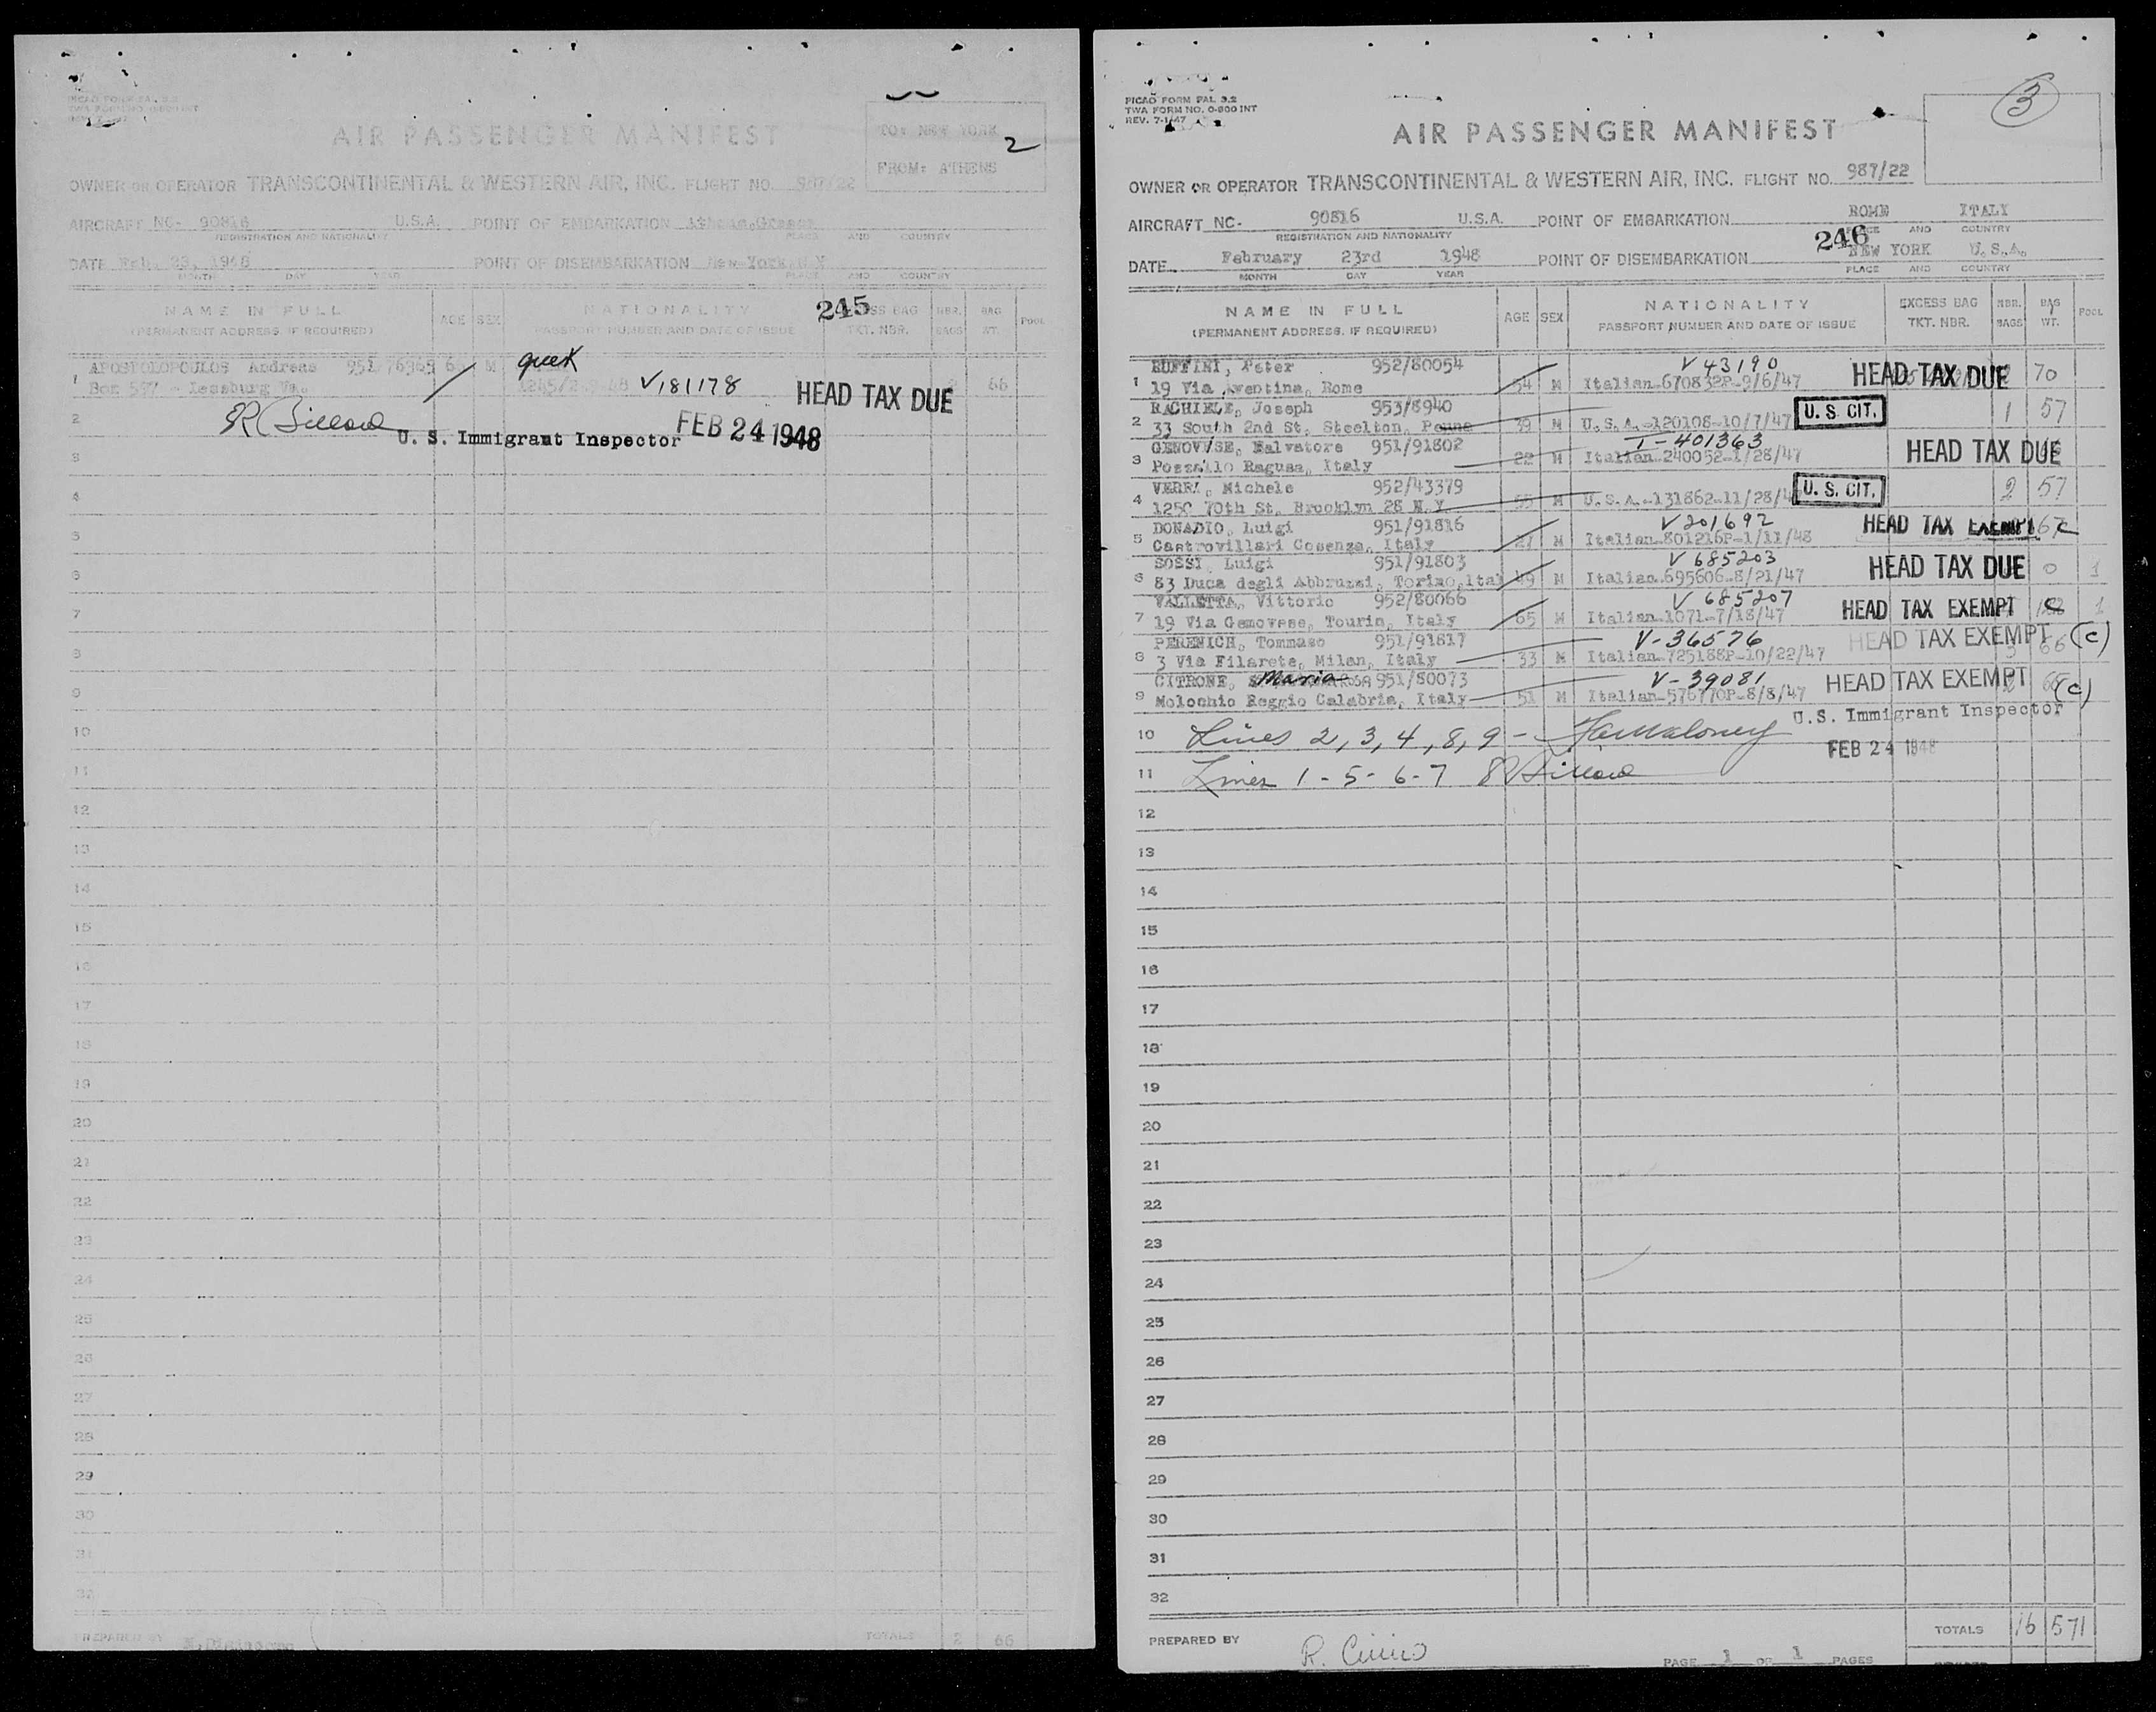 PICAO FORM PAL 3.2
TWA FORM NO. 0-800 INT
AIR PASSENGER MANIFEST
TO: NEW YORK
2
FROM: ATHENS
OWNER OR OPERATOR TRANSCONTINENTAL & WESTERN AIR, INC. FLIGHT NO. 987/22
AIRCRAFT NC- 90816 U.S.A. POINT OF EMBARKATION Athens, Greece
REGISTRATION AND NATIONALITY PLACE AND COUNTRY
DATE Feb. 23, 1948 POINT OF DISEMBARKATION New York, N.Y.
MONTH DAY YEAR PLACE AND COUNTRY
245
NAME IN FULL AGE SEX NATIONALITY EXCESS BAG NBR. BAG POOL
(PERMANENT ADDRESS, IF REQUIRED) PASSPORT NUMBER AND DATE OF ISSUE TKT. NBR. BAGS WT.
APOSTOLOPOULOS Andreas 951/76365 M greek
1 Box 597 - Leesburg Va. V181178 HEAD TAX DUE 2 66
2 U. S. Immigrant Inspector FEB 24 1948
3
4
5
6
7
8
9
10
11
12
13
14
15
16
17
18
19
20
21
22
23
24
25
26
27
28
29
30
31
32
PREPARED BY TOTALS 2 66
PICAO FORM PAL 3.2
TWA FORM NO. 0-800 INT
REV. 7-1-47
3
AIR PASSENGER MANIFEST
OWNER OR OPERATOR TRANSCONTINENTAL & WESTERN AIR, INC. FLIGHT NO. 987/22
AIRCRAFT NC- 90816 U.S.A. POINT OF EMBARKATION ROME ITALY
REGISTRATION AND NATIONALITY PLACE AND COUNTRY
246
DATE February 23rd 1948 POINT OF DISEMBARKATION NEW YORK U.S.A.
MONTH DAY YEAR PLACE AND COUNTRY
NAME IN FULL AGE SEX NATIONALITY EXCESS BAG NBR. BAG POOL
(PERMANENT ADDRESS, IF REQUIRED) PASSPORT NUMBER AND DATE OF ISSUE TKT. NBR. BAGS WT.
RUFFINI, Peter 952/80054 V 43190
1 19 Via Aventina, Rome 54 M Italian-670832P-9/6/47 HEAD TAX DUE 2 70
RACHIELE, Joseph 953/8940
2 33 South 2nd St, Steelton, Penna 39 M U.S.A.-120108-10/7/47 U. S. CIT. 1 57
GENOVESE, Salvatore 951/91802 I-401363
3 Pozzallo Ragusa, Italy 22 M Italian-240052-1/28/47 HEAD TAX DUE
VERRI, Michele 952/43379
4 1250 70th St, Brooklyn 28 N.Y. 55 M U.S.A.-131862-11/28/4 U. S. CIT. 2 57
DONADIO, Luigi 951/91816 V 201692
5 Castrovillari Cosenza, Italy 27 M Italian-801216P-1/11/48 HEAD TAX EXEMPT
SOSSI, Luigi 951/91803 V 685203
6 83 Duca degli Abbruzzi, Torino, Ital 49 M Italian-695606-8/21/47 HEAD TAX DUE 0 1
VALLETTA, Vittorio 952/80066 V 685207
7 19 Via Genovese, Tourin, Italy 65 M Italian-1071-7/18/47 HEAD TAX EXEMPT c 1
PERENICH, Tommaso 951/91817 V-36576
8 3 Via Filarete, Milan, Italy 33 M Italian-725188P-10/22/47 HEAD TAX EXEMPT 3 66 (c)
CITRONE, Maria 951/80073 V-39081
9 Molochio Reggio Calabria, Italy 51 M Italian-576770P-8/8/47 HEAD TAX EXEMPT (c)
U.S. Immigrant Inspector
10 Lines 2, 3, 4, 8, 9 - Maloney FEB 24 1948
11 Lines 1-5-6-7
12
13
14
15
16
17
18
19
20
21
22
23
24
25
26
27
28
29
30
31
32
TOTALS 16 571
PREPARED BY
PAGE 1 OF 1 PAGES